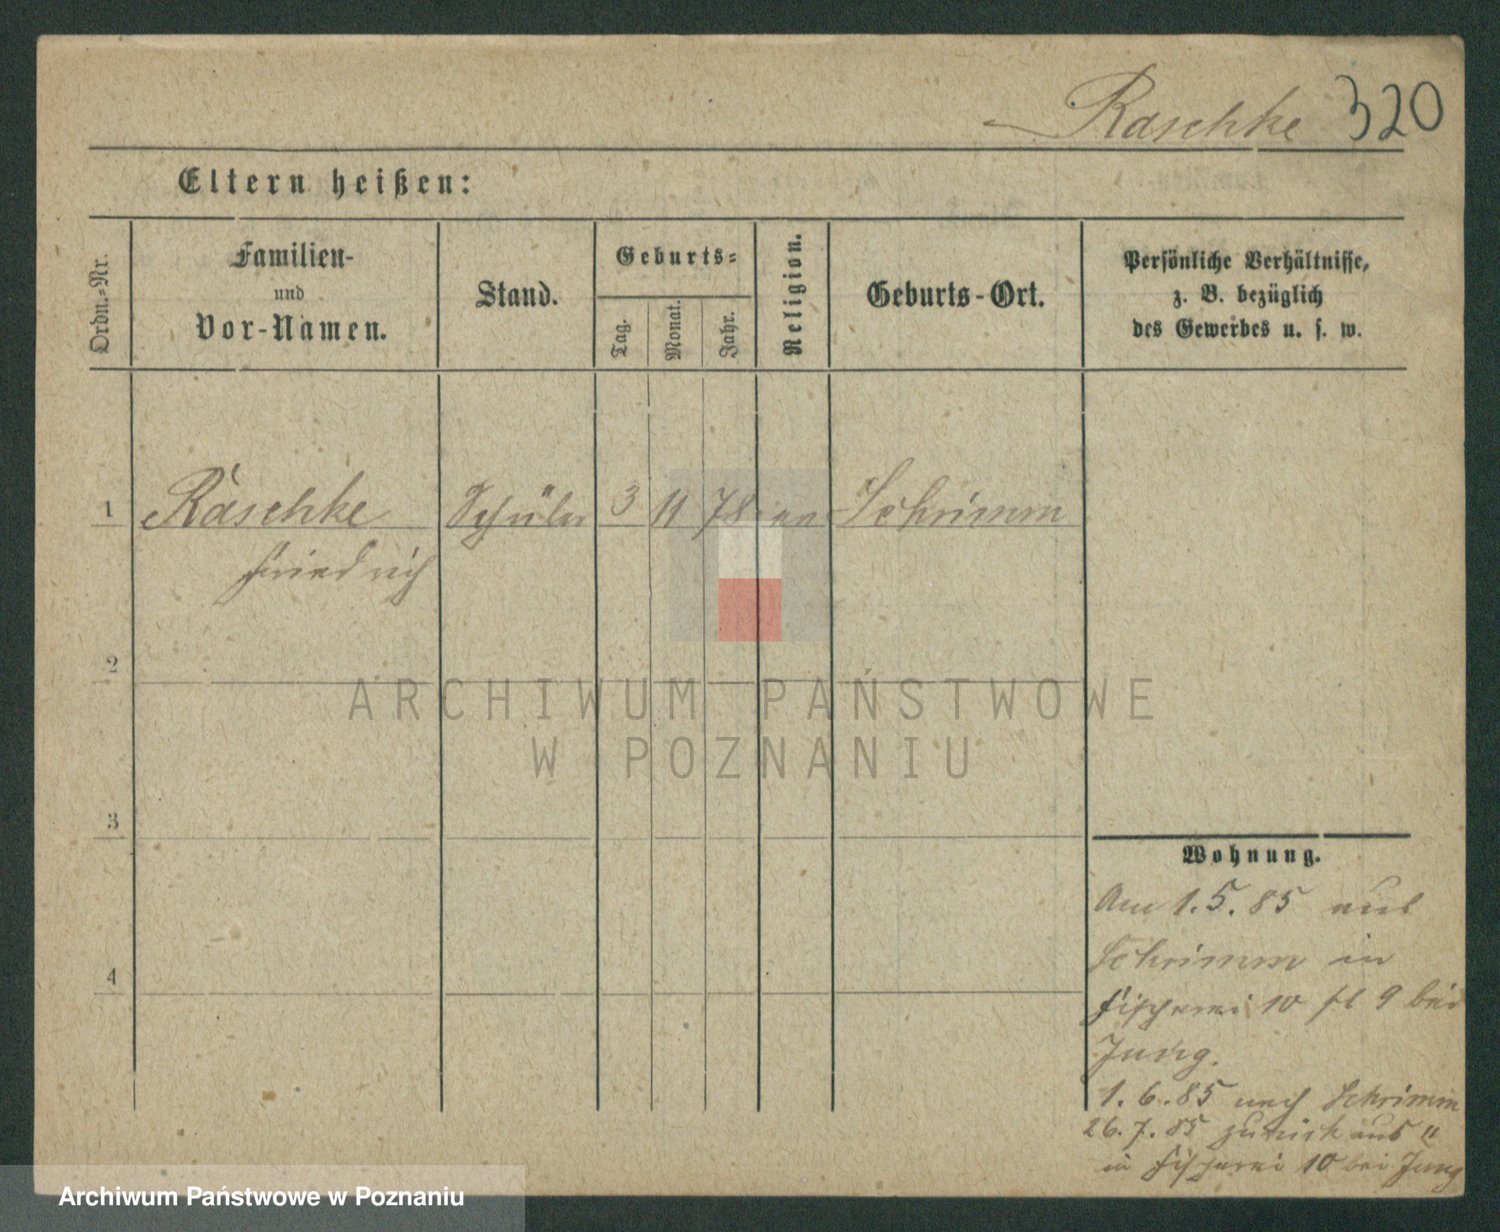 Raschke 320
Eltern heißen:
Ordn.-Nr.
Familien-
und
Vor-Namen.
Stand.
Geburts-
Tag.
Monat.
Jahr.
Religion.
Geburts-Ort.
Persönliche Verhältnisse,
z. B. bezüglich
des Gewerbes u. s. w.
1 Raschke Schüler 3 11 78 Schrimm
Friedrich
2
3
4
Wohnung.
Am 1.5.85 aus
Schrimm in
Fischerei 10 9 bei
Jung.
1.6.85 nach Schrimm
26.7.85 zurück aus "
in Fischerei 10 bei Jung
ARCHIWUM PAŃSTWOWE
W POZNANIU
Archiwum Państwowe w Poznaniu